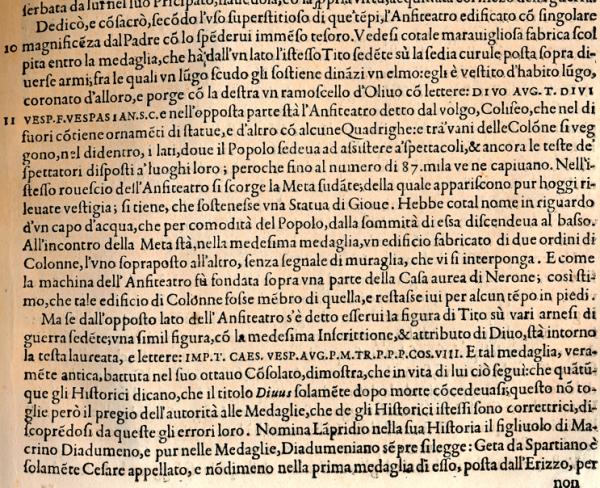 Dedicò, e cōsacrò, secōdo l'vso superstitioso di que' tēpi, l'Anfiteatro edificato cō singolare
10 magnificēza dal Padre cō lo spēderui immēso tesoro. Vedesi cotale marauigliosa fabrica scol
pita entro la medaglia, che hà dall'vn lato l'istesso Tito sedēte sù la sedia curule posta sopra di-
uerse armi; fra le quali vn lūgo scudo gli sostiene dināzi vn elmo: egli è vestito d'habito lūgo,
coronato d'alloro, e porge cō la destra vn ramoscello d'Oliuo cō lettere: DIVO AVG. T. DIVI
11 VESP. F. VESPASIAN. S. C. e nell'opposta parte stà l'Anfiteatro detto dal volgo, Coliseo, che nel di
fuori cōtiene ornamēti di statue, e d'altro cō alcune Quadrighe: e trà' vani delle Colōne si veg
gono, nel didentro, i lati, doue il Popolo sedeua ad assistere a' spettacoli, & ancora le teste de'
spettatori disposti a' luoghi loro; peroche fino al numero di 87. mila ve ne capiuano. Nell'i-
stesso rouescio dell'Anfiteatro si scorge la Meta sudāte; della quale appariscono pur hoggi ri-
leuate vestigia; si tiene, che sostenesse vna Statua di Gioue. Hebbe cotal nome in riguardo
d'vn capo d'acqua, che per comodità del Popolo, dalla sommità di essa discendeua al basso.
All'incontro della Meta stà, nella medesima medaglia, vn edificio fabricato di due ordini di
Colonne, l'vno sopraposto all'altro, senza segnale di muraglia, che vi si interponga. E come
la machina dell'Anfiteatro fù fondata sopra vna parte della Casa aurea di Nerone; così sti-
mo, che tale edificio di Colōnne fosse mēbro di quella, e restasse iui per alcun tēpo in piedi.
Ma se dall'opposto lato dell'Anfiteatro s'è detto esserui la figura di Tito sù vari arnesi di
guerra sedēte; vna simil figura, cō la medesima Inscrittione, & attributo di Diuo, stà intorno
la testa laureata, e lettere: IMP. T. CAES. VESP. AVG. P. M. TR. P. P. P. COS. VIII. E tal medaglia, vera-
mēte antica, battuta nel suo ottauo Cōsolato, dimostra, che in vita di lui ciò seguì: che quātū-
que gli Historici dicano, che il titolo Diuus solamēte dopo morte cōcedeuasi; questo nō to-
glie però il pregio dell'autorità alle Medaglie, che de gli Historici istessi sono correttrici, di-
scoprēdosi da queste gli errori loro. Nomina Lāpridio nella sua Historia il figliuolo di Ma-
crino Diadumeno, e pur nelle Medaglie, Diadumeniano sēpre si legge: Geta da Spartiano è
solamēte Cesare appellato, e nōdimeno nella prima medaglia di esso, posta dall'Erizzo, per
non